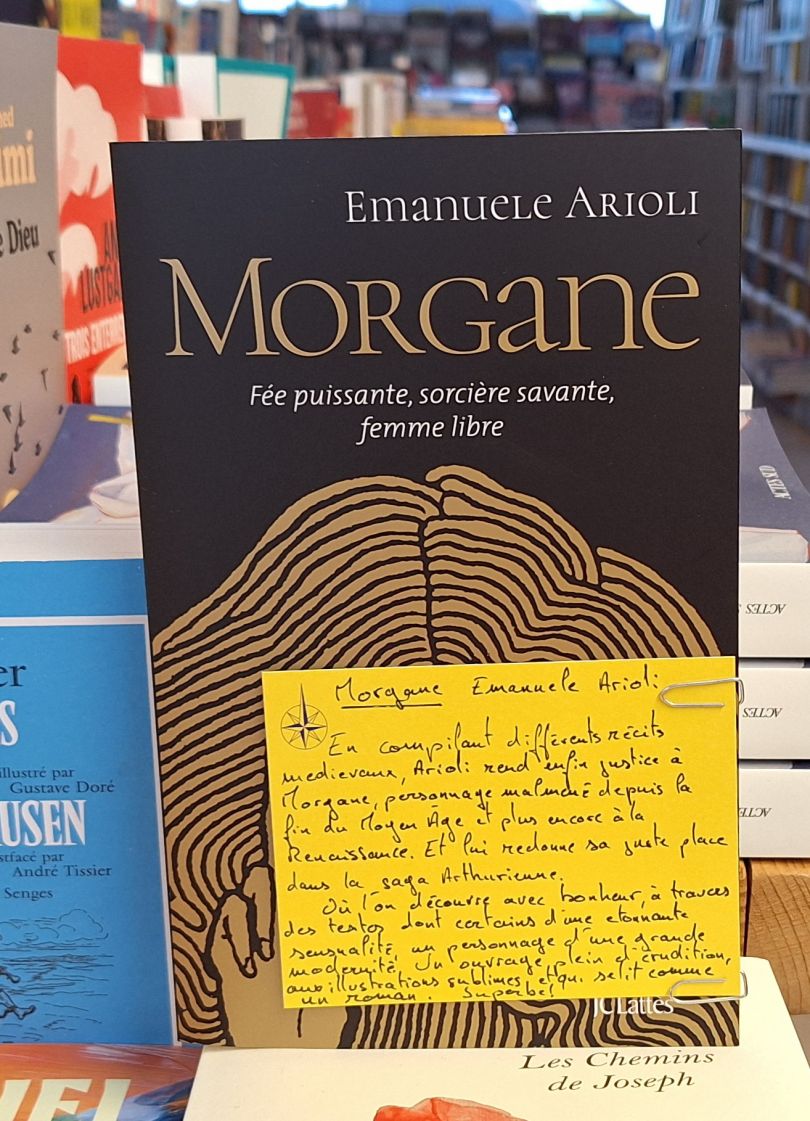 Emanuele Arioli
Morgane
Fée puissante, sorcière savante,
femme libre
Morgane Emanuele Arioli
En compilant différents récits
medievaux, Arioli rend enfin justice à
Morgane, personnage malmené depuis la
fin du Moyen Âge et plus encore à la
Renaissance. Et lui redonne sa juste place
dans la saga Arthurienne.
Où l'on découvre avec bonheur, à travers
des textes dont certains d'une etonnante
sensualité, un personnage d'une grande
modernité. Un ouvrage plein d'érudition,
aux illustrations sublimes et qui se lit comme
un roman. Superbe!
JCLattès
Les Chemins
de Joseph
mi
Dieu
AN
LUSTGA
TROIS ENTERRE
er
S
illustré par
Gustave Doré
USEN
stfacé par
André Tissier
Senges
ACTES SUD
ACTES S
ACTES
ACTE